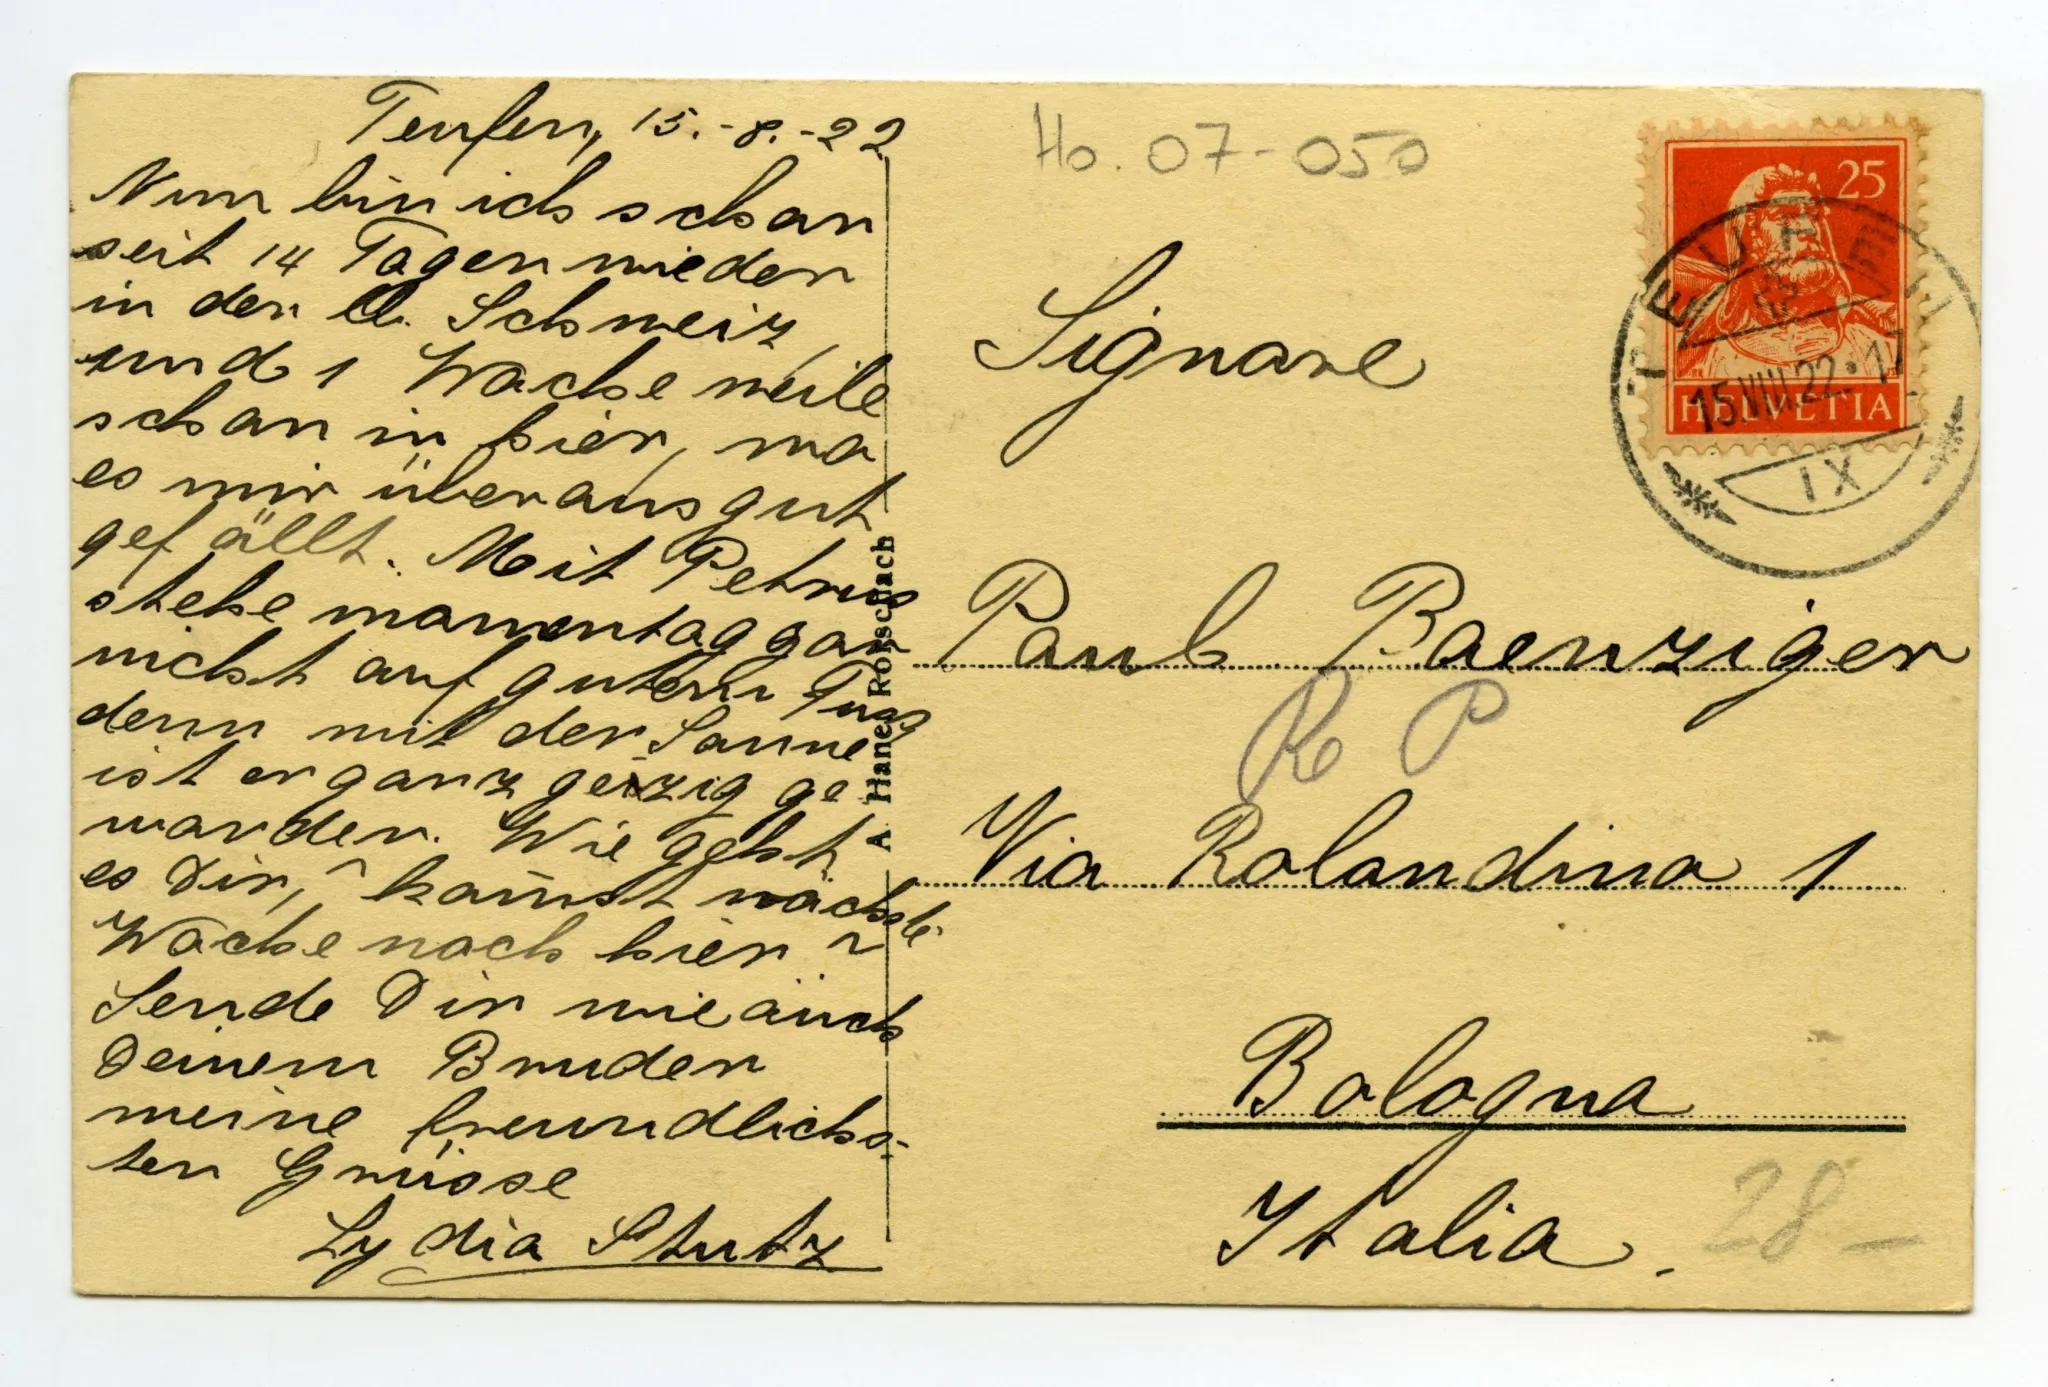 Teufen, 15.-8.-22
Nun bin ich schon
seit 14 Tagen wieder
in der lb. Schweiz,
und 1 Woche weile
schon in hier, wo
es mir überaus gut
gefällt. Mit Petrus
stehe momentag gar
nicht auf gutem Fuss
denn mit der Sonne
ist er ganz geizig ge-
worden. Wie geht
es Dir, kommst nächste
Woche nach hier?
Sende Dir wie auch
Deinem Bruder
meine freundlichs-
ten Grüsse
Lydia Stutz
A. Hane Rorschach
Ho. 07-050
25
HELVETIA
TEUFEN
15.VIII.22.17
IX
Signore
Paul Baenziger
R P
Via Rolandino 1
Bologna
Italia.
28-